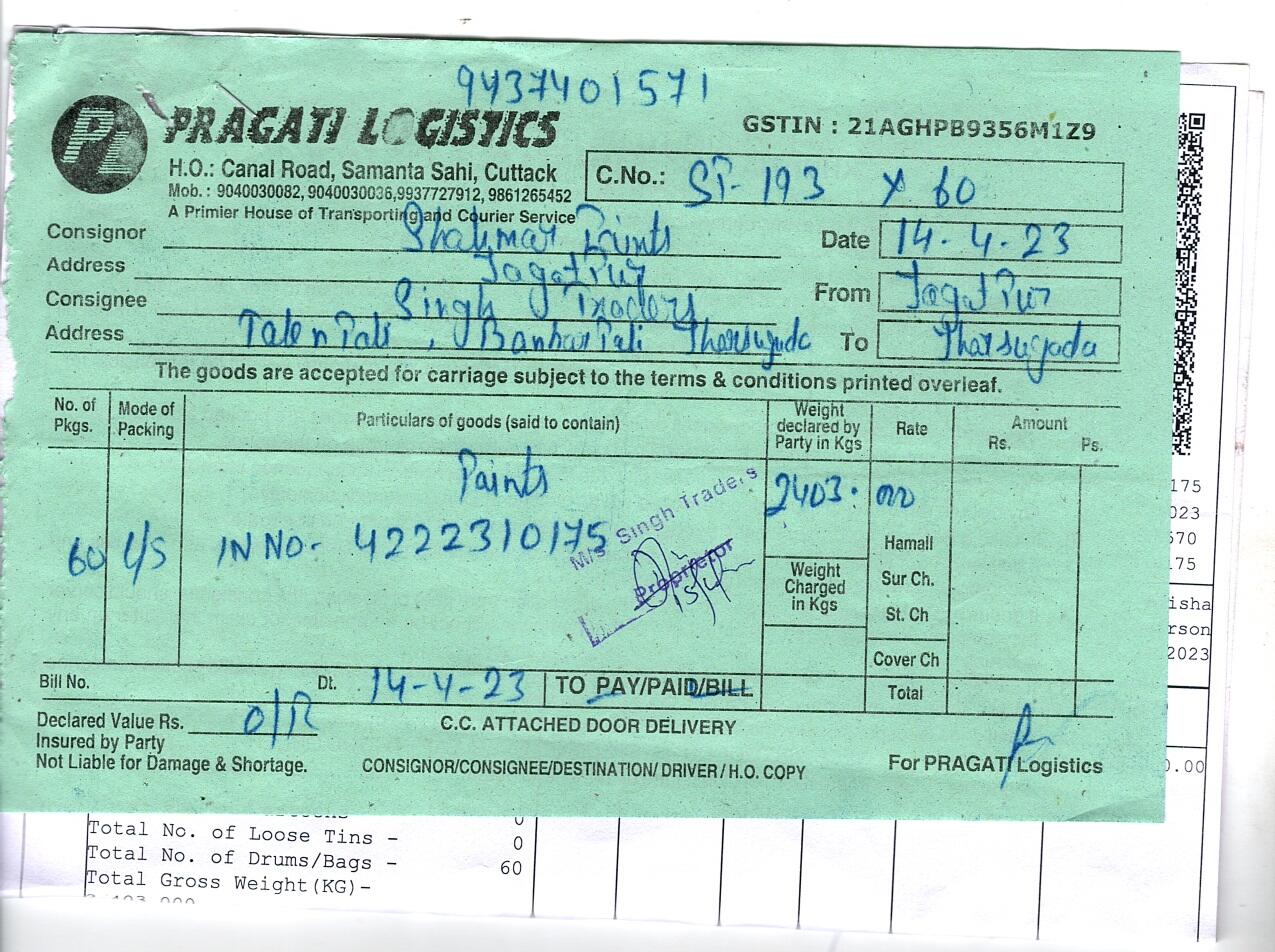 9437401571
PL PRAGATI LOGISTICS
GSTIN : 21AGHPB9356M1Z9
H.O.: Canal Road, Samanta Sahi, Cuttack
Mob. : 9040030082, 9040030036,9937727912, 9861265452
A Primier House of Transporting and Courier Service
C.No.: ST-193 x 60
Consignor Shalimar Paints
Date 14-4-23
Address Jagatpur
From Jagatpur
Consignee Singh Traders
Address Jharsuguda To Jharsuguda
The goods are accepted for carriage subject to the terms & conditions printed overleaf.
No. of Pkgs. Mode of Packing Particulars of goods (said to contain) Weight declared by Party in Kgs Rate Amount Rs. Ps.
Paints
60 C/S IN NO- 4222310175 2403.
M/s Singh Traders
Proprietor
15/4
Hamali
Weight Charged in Kgs
Sur Ch.
St. Ch
Cover Ch
Total
Bill No. Dt. 14-4-23 TO PAY/PAID/BILL
Declared Value Rs.
C.C. ATTACHED DOOR DELIVERY
Insured by Party
Not Liable for Damage & Shortage.
CONSIGNOR/CONSIGNEE/DESTINATION/ DRIVER / H.O. COPY
For PRAGATI Logistics
175
023
570
175
isha
rson
2023
0.00
0
Total No. of Loose Tins - 0
Total No. of Drums/Bags - 60
Total Gross Weight(KG)-